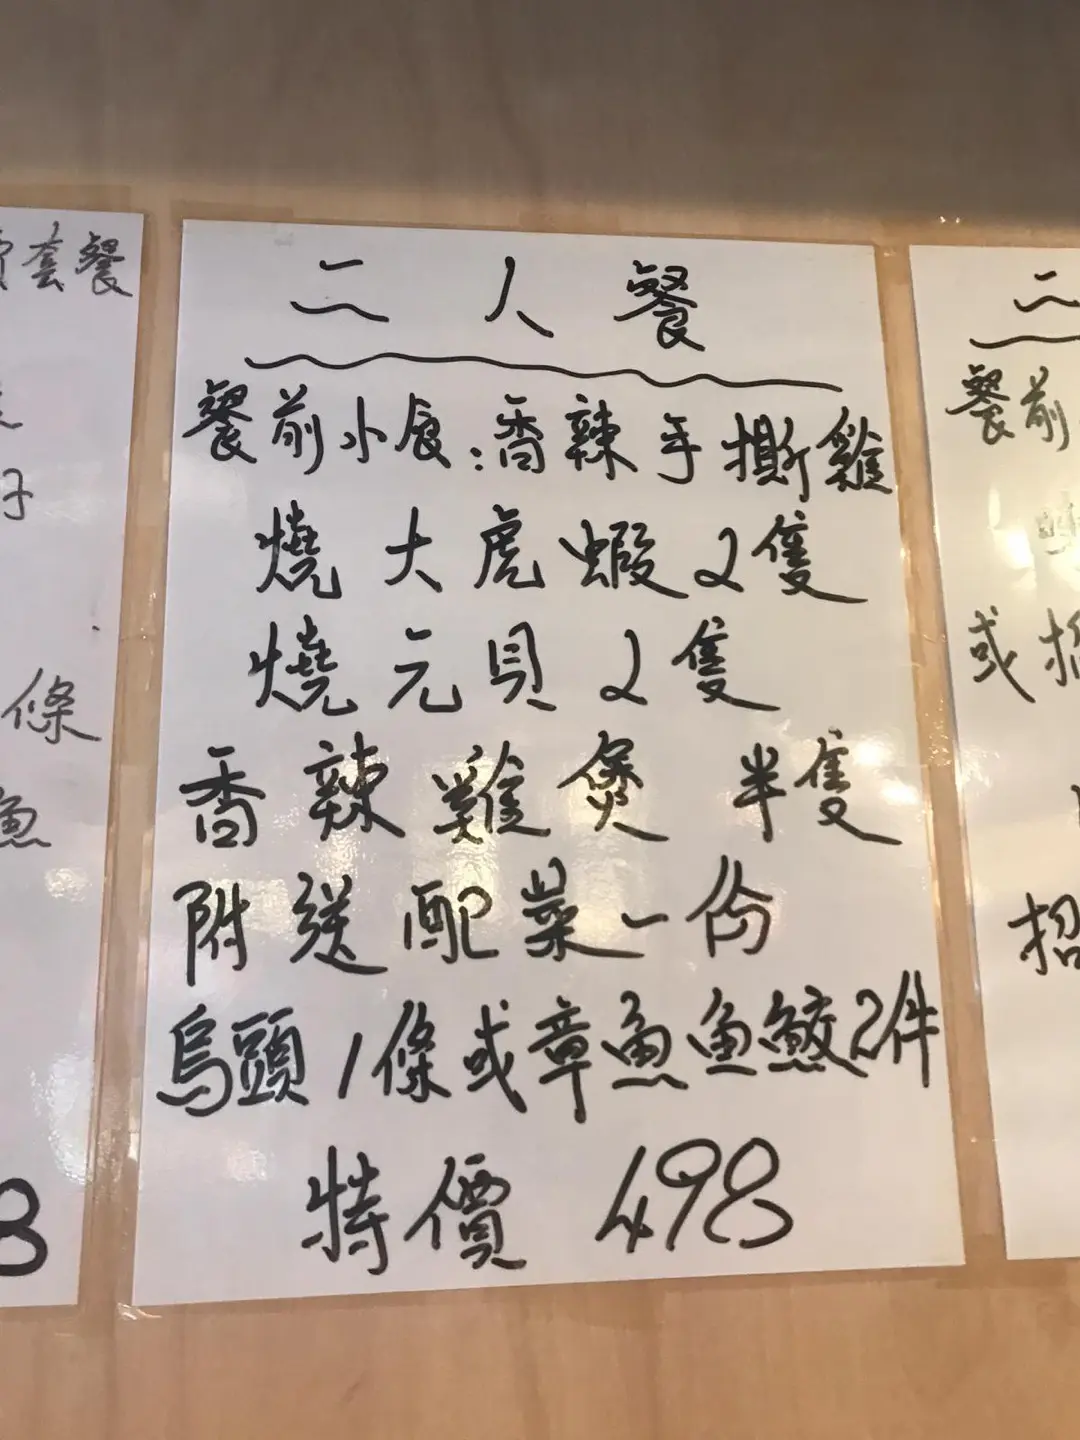 套餐
條
魚
8
二人餐
餐前小食:香辣手撕雞
燒大虎蝦2隻
燒元貝2隻
香辣雞煲 半隻
附送配菜一份
烏頭1條或章魚魚鮫2件
特價 498
二
餐前
或招
招